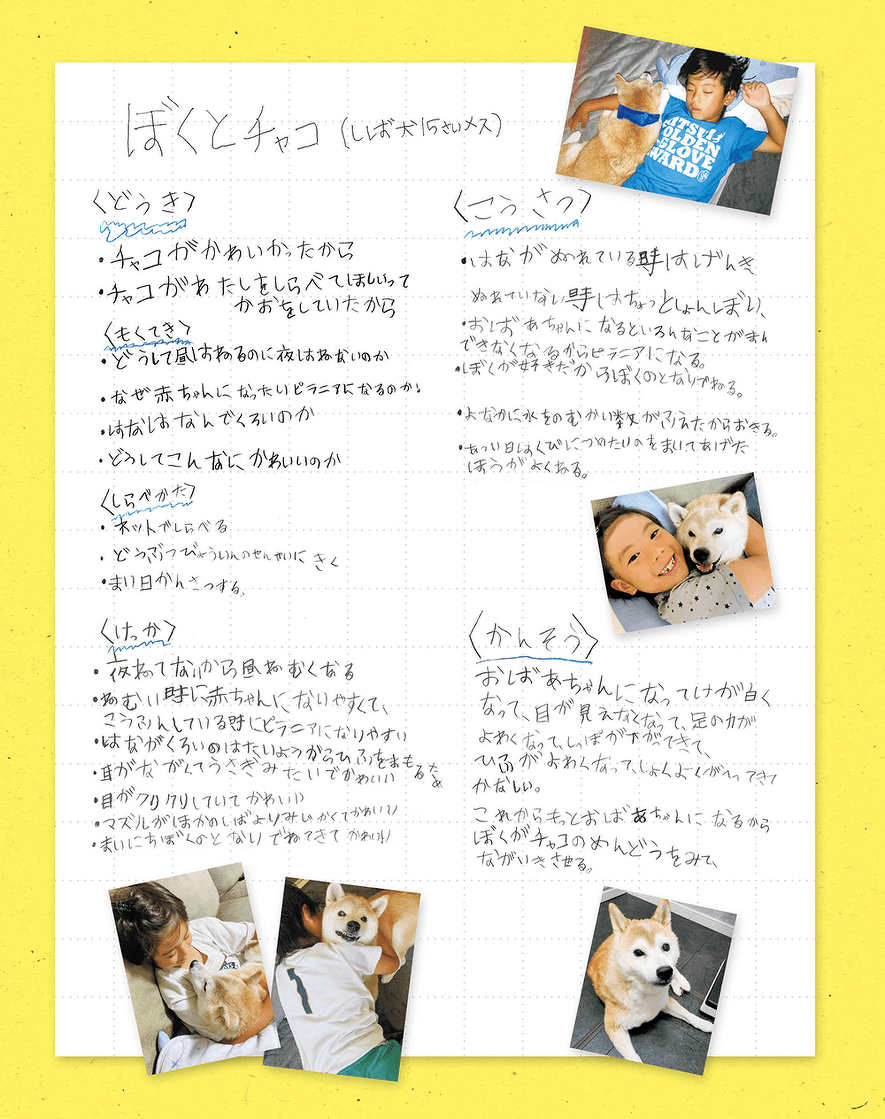 ぼくとチャコ(しば犬15さいメス)
〈どうき〉
・チャコがかわいかったから
・チャコがわたしをしらべてほしいって
かおをしていたから
〈もくてき〉
・どうして昼はねるのに夜はねないのか
・なぜ赤ちゃんになったりピラニアになるのか
・はなはなんでくろいのか
・どうしてこんなにかわいいのか
〈しらべかた〉
・ネットでしらべる
・どうぶつびょういんのせんせいにきく
・まい日かんさつする。
〈けっか〉
・夜ねてないから昼ねむくなる
・ねむい時に赤ちゃんになりやすくて、
こうふんしている時にピラニアになりやすい
・はながくろいのはたいようからひふをまもるため
・耳がながくてうさぎみたいでかわいい
・目がクリクリしていてかわいい
・マズルがほかのしばよりみじかくてかわいい
・まいにちぼくのとなりでねてきてかわいい
〈こうさつ〉
・はながぬれている時はげんき
ぬれていない時はちょっとしょんぼり、
・おばあちゃんになるといろんなことが
できなくなるからピラニアになる。
・ぼくが好きだからぼくのとなりでねる。
・よなかに水をのむかい数がふえたからおきる。
・あつい日はくびにつめたいのをまいてあげた
ほうがよくねる。
〈かんそう〉
おばあちゃんになってけが白く
なって、目が見えなくなって、足の力が
よわくなって、しっぽが下がってきて、
ひふがよわくなって、しょくよくがへってきて
かなしい。
これからもっとおばあちゃんになるから
ぼくがチャコのめんどうをみて、
ながいきさせる。
ATSU
GOLDEN
GLOVE
AWARD
1